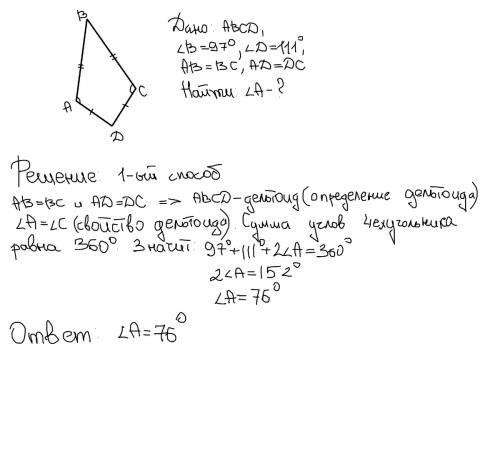 B
A
C
D
Дано: ABCD,
∠B=97°, ∠D=111°,
AB=BC, AD=DC
Найти: ∠A-?
Решение: 1-ый способ
AB=BC и AD=DC => ABCD-дельтоид (определение дельтоида)
∠A=∠C (свойство дельтоида). Сумма углов 4ехугольника
равна 360°. Значит: 97°+111°+2∠A=360°
2∠A=152°
∠A=76°
Ответ: ∠A=76°